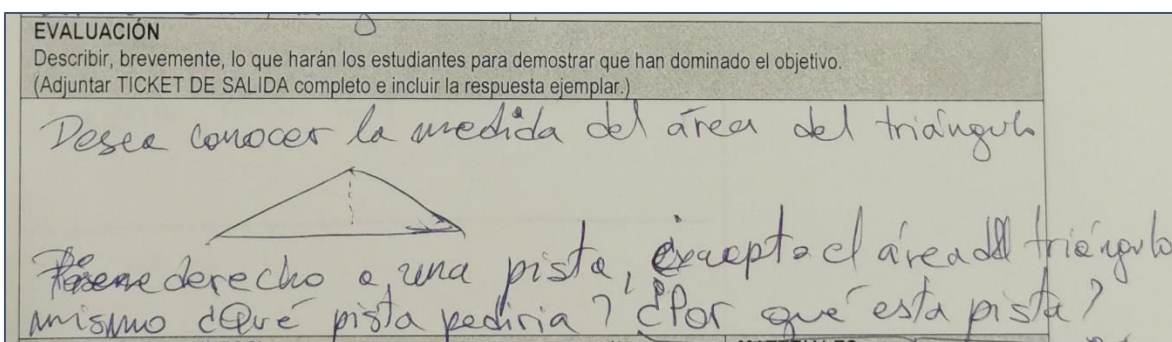 EVALUACIÓN
Describir, brevemente, lo que harán los estudiantes para demostrar que han dominado el objetivo.
(Adjuntar TICKET DE SALIDA completo e incluir la respuesta ejemplar.)
Desea conocer la medida del área del triángulo
derecho a una pista, excepto el área del triángulo
mismo ¿Qué pista pediria? ¿Por qué esta pista?